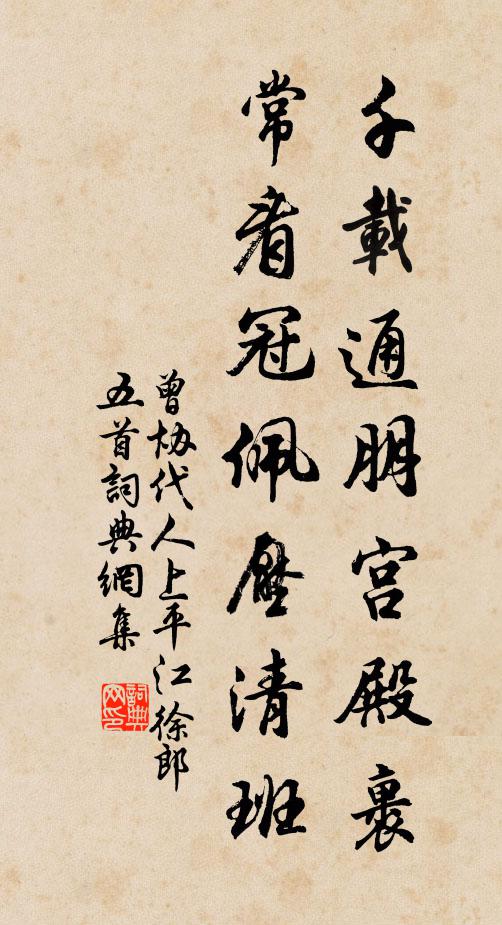 千載通明宮殿裹
常看冠佩壓清班
曾協代人上平江徐郎
五首詞典網集
詞典网印